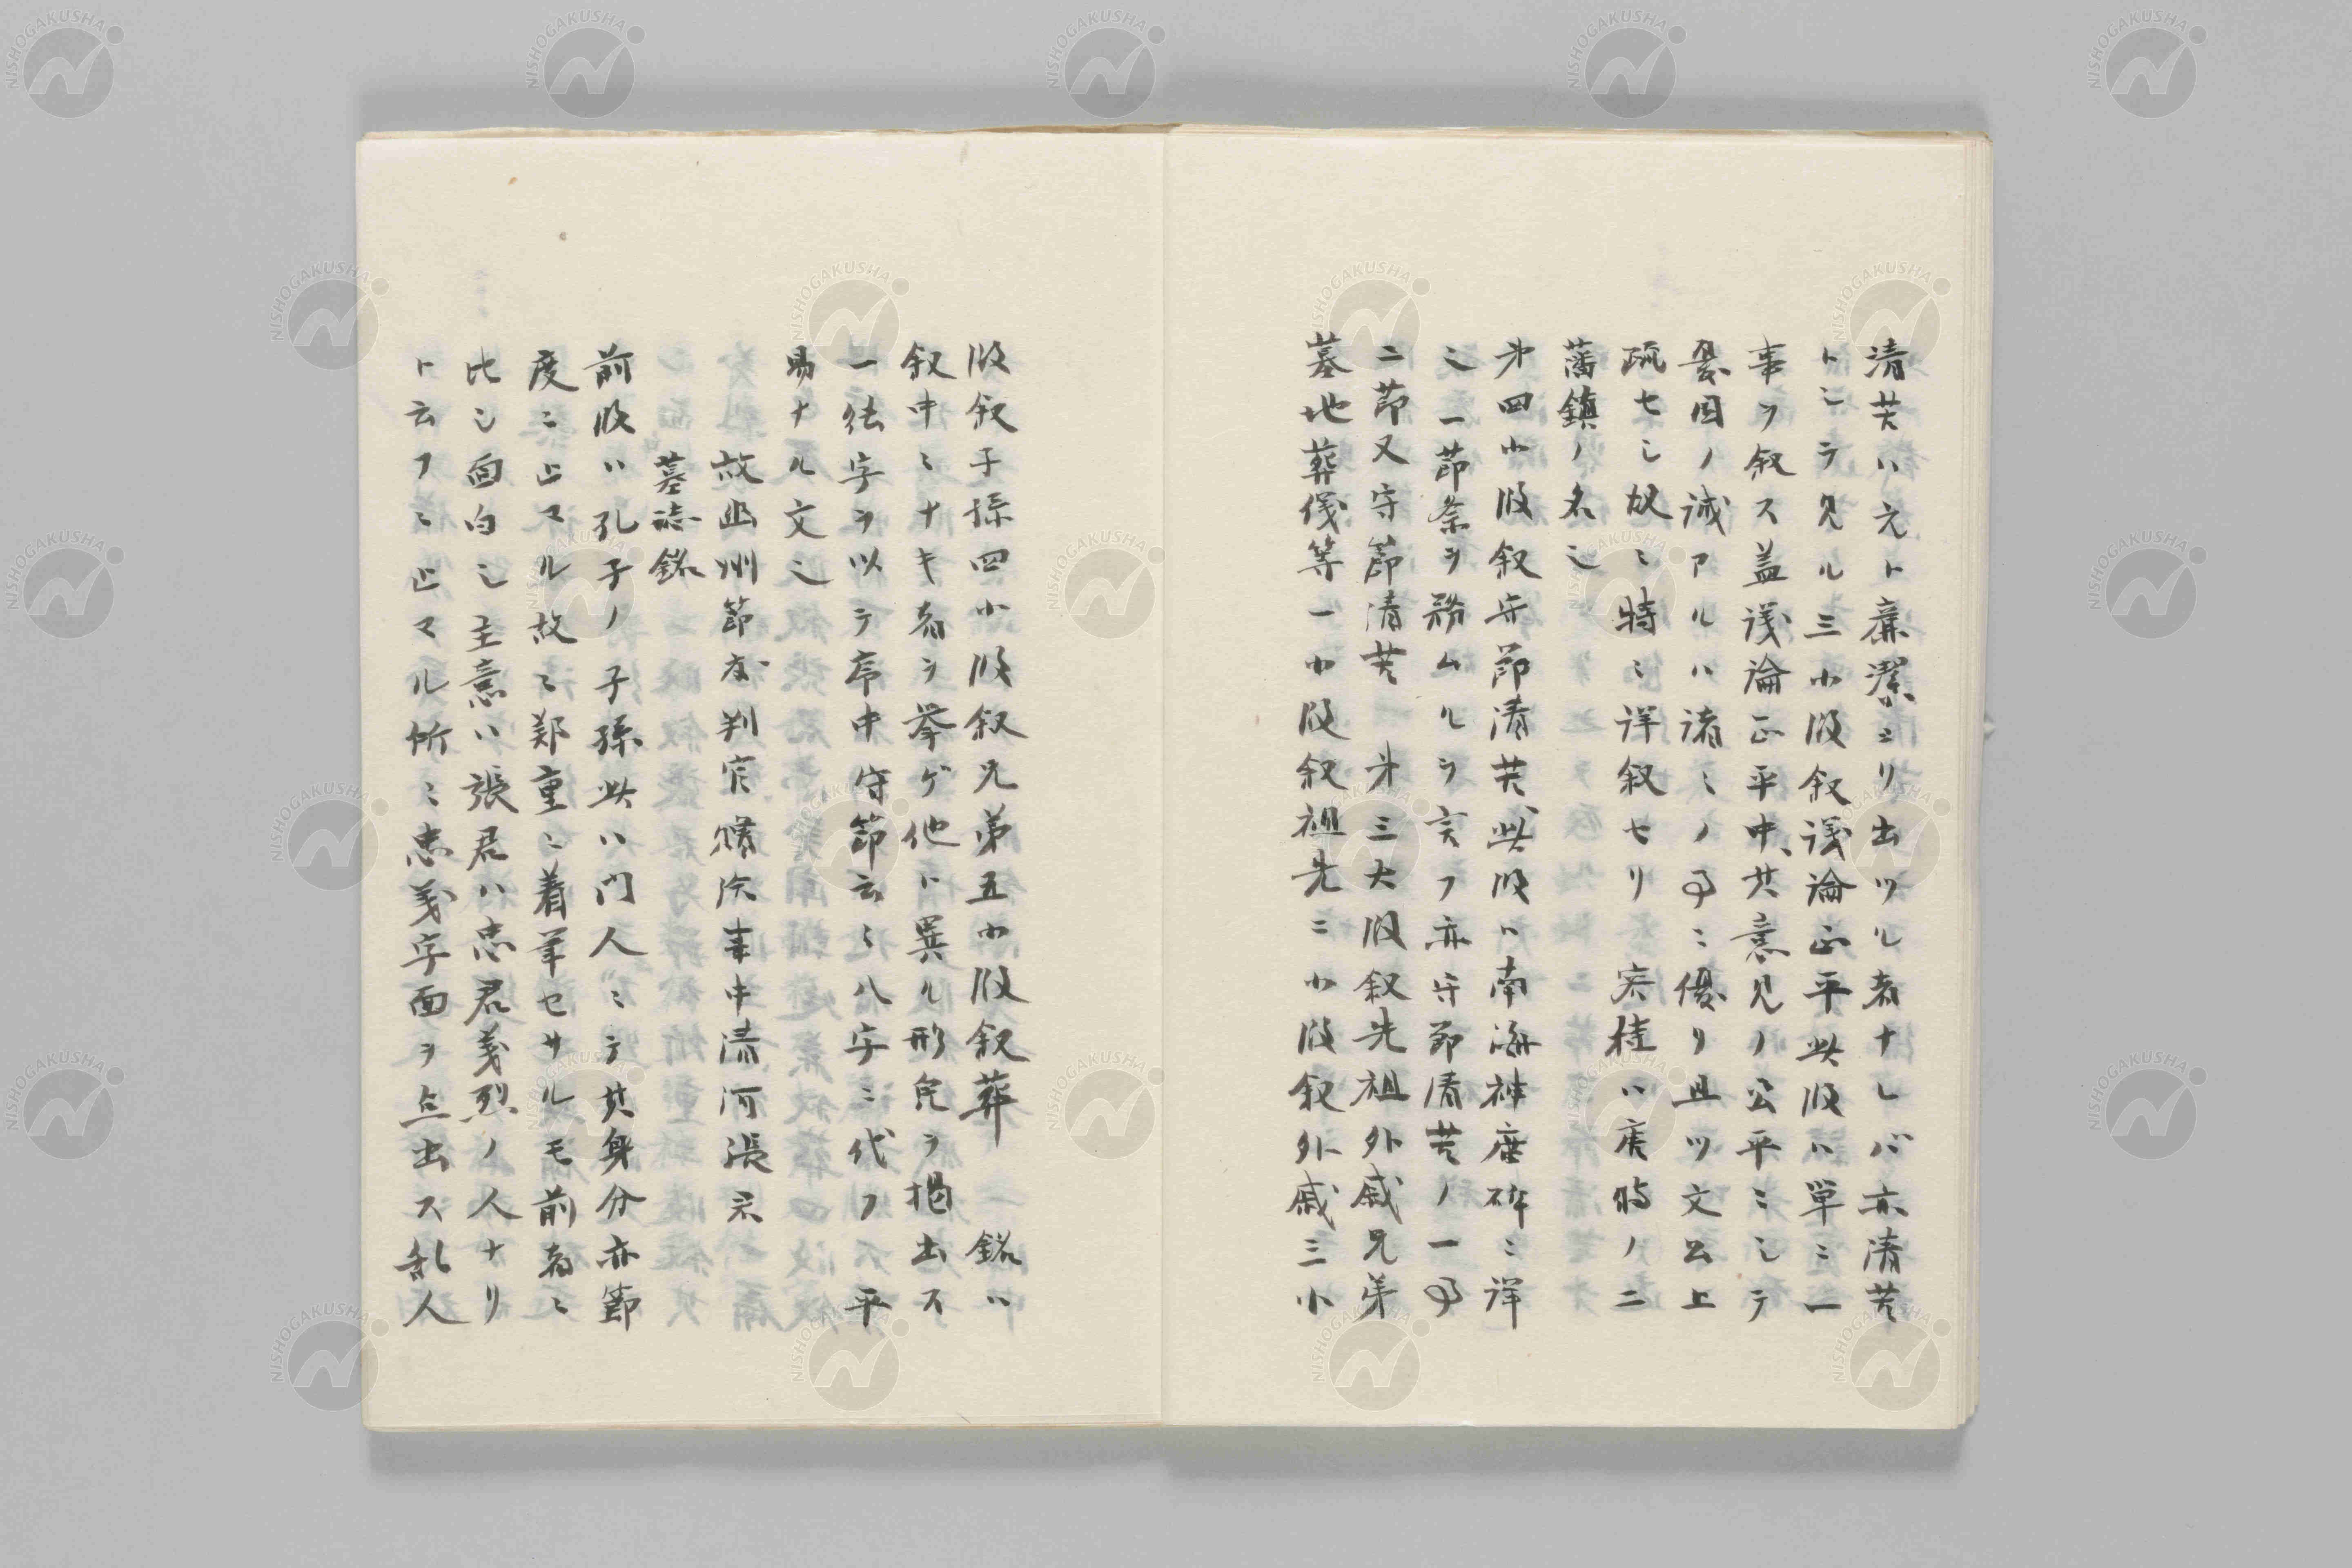 清苦ハ元ト廉潔ヨリ出ツル者ナレバ亦清苦
トシテ見ル三小段叙議論正平此段ハ単ニ一
事ヲ叙ス蓋議論正平中、其意見ノ公平ニシテ
ノ誠アルハ諸ミノヿニ優リ且ツ文公上
疏セシ故ニ特ニ詳叙セリ 桂ハ唐時ノ二
藩鎮ノ名也
第四小段叙守節清苦此段ハ南海神庿碑ニ詳
也一節祭ヲ務ムルヲ言フ亦守節清苦ノ一ヿ
二節又守節清苦 第三大段叙先祖外戚兄弟
墓地葬儀等一小段叙祖先二小段叙外戚三小
段叙子孫四小段叙兄弟五小段叙葬 銘ハ
叙中ニナキ者ヲ挙ゲ他ト異ル形容ヲ掲出ス
一法字ヲ以テ序中守節云々八字ニ代フ平
易ナル文也
故幽州節度判官贈給事中清河張君
墓誌銘
前段ハ孔子ノ子孫此ハ門人ニテ其身分亦節
度ニ止マル故ニ鄭重ニ着筆セサルモ前者ニ
比シ面白シ主意ハ張君ハ忠君義烈ノ人ナリ
ト云フニ止マル所ニ忠義字面ヲ点出ス乱人
NISHOGAKUSHA